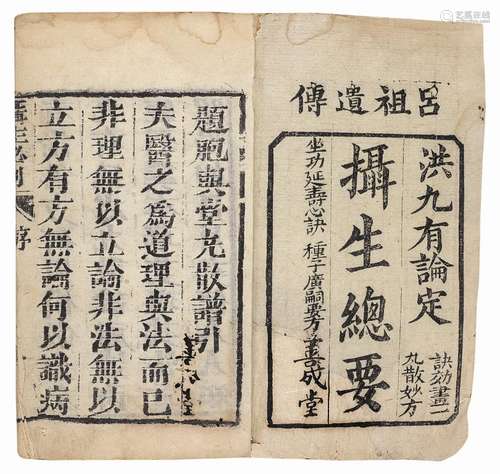 呂祖遺傳
洪九有論定
訣効畫一
丸散妙方
攝生總要
坐功延壽心訣
種子廣嗣要方
善成堂
題胞與堂丸散譜引
夫醫之為道理與法而已
非理無以立論非法無以
立方有方無論何以識病
序